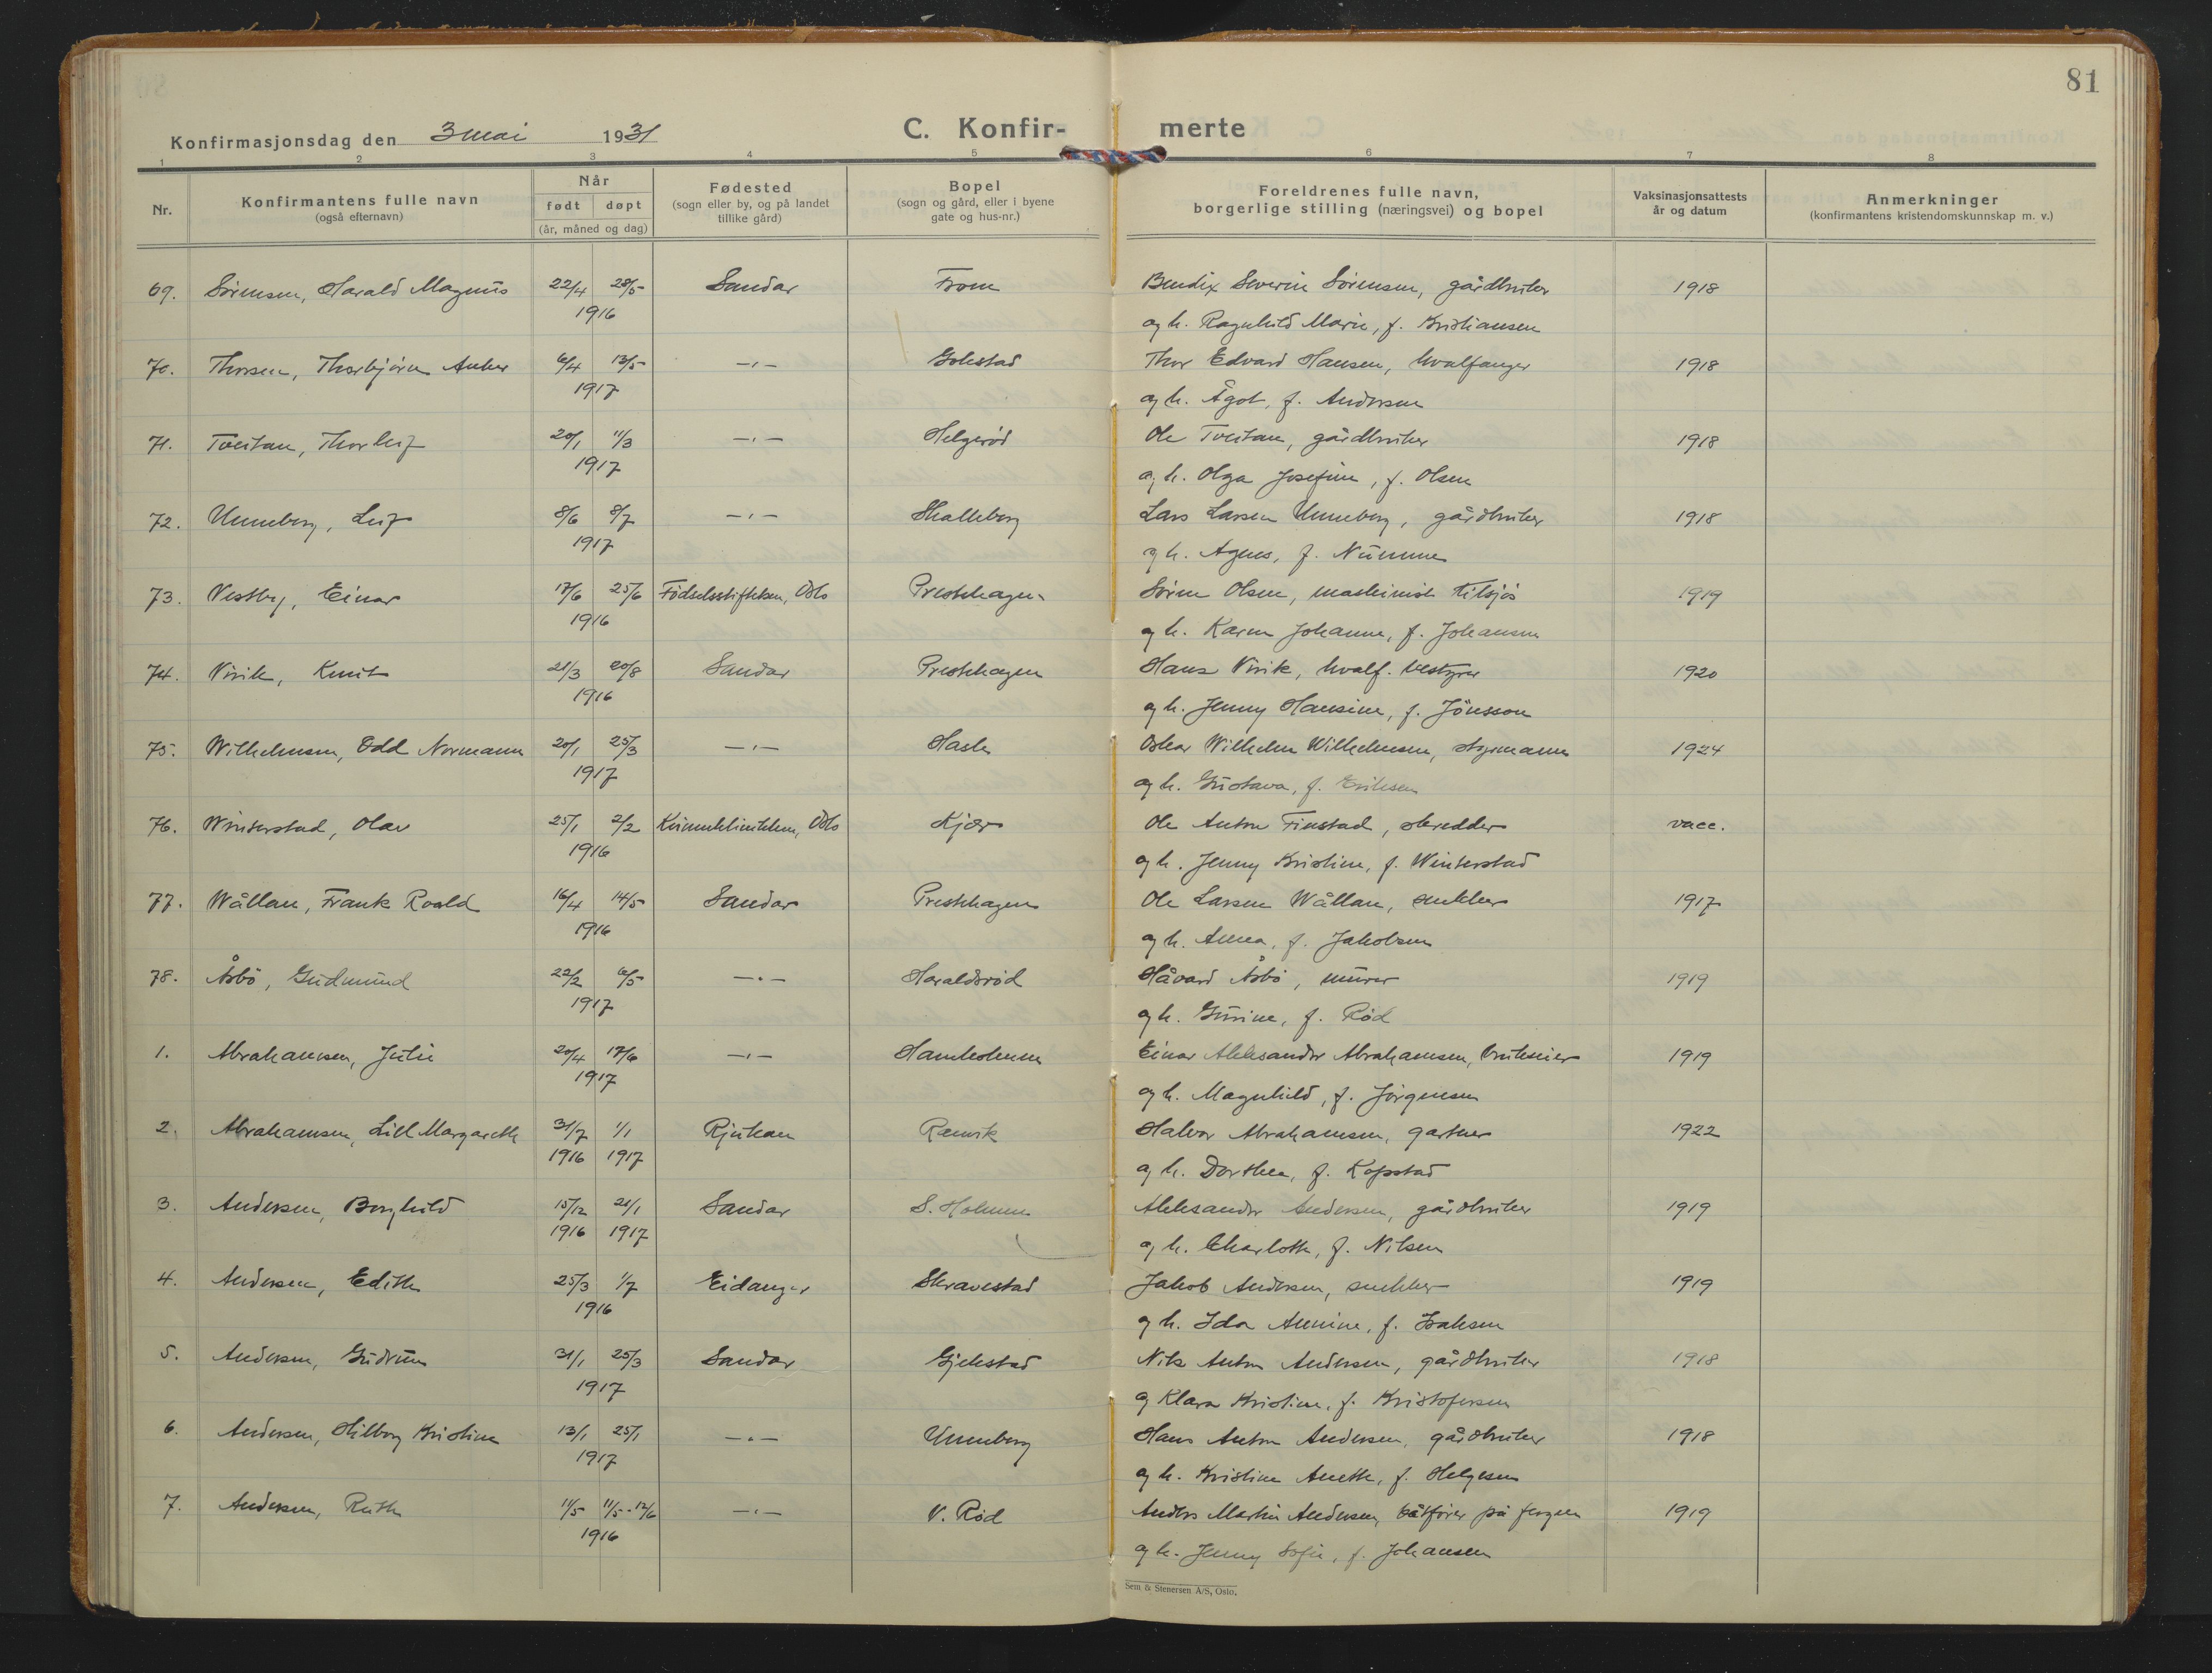 81
Konfirmasjonsdag den 3 mai 1931
C. Konfir- merte
1 2 3 4 5 6 7 8
Nr.
Konfirmantens fulle navn
(også efternavn)
Når
født døpt
(år, måned og dag)
Fødested
(sogn eller by, og på landet
tillike gård)
Bopel
(sogn og gård, eller i byene
gate og hus-nr.)
Foreldrenes fulle navn,
borgerlige stilling (næringsvei) og bopel
Vaksinasjonsattests
år og datum
Anmerkninger
(konfirmantens kristendomskunnskap m. v.)
69. Sörensen, Harald Magnus 22/4 28/5 Sandar From Bendix Severin Sörensen, gårdbruker 1918
1916 og h. Ragnhild Marie, f. Kristiansen
70. Thorsen, Thorbjörn Anker 6/4 13/5 —"— Gokstad Thor Edvard Hansen, hvalfanger 1918
1917 og h. Ågot, f. Andersen
71. Tveitan, Thorleif 20/1 11/3 —"— Helgerød Ole Tveitan, gårdbruker 1918
1917 og h. Olga Josefine, f. Olsen
72. Unneberg, Leif 8/6 8/7 —"— Skalleberg Lars Larsen Unneberg, gårdbruker 1918
1917 og h. Agnes, f. Nümme
73. Vestby, Einar 17/6 25/6 Födselsstiftelsen, Oslo Presthagen Sörine Olsen, maskinist tilsjös 1919
1916 og h. Karen Johanne, f. Johansen
74. Virik, Knut 21/3 20/8 Sandar Presthagen Hans Virik, hvalf. bestyrer 1920
1916 og h. Jenny Hansine, f. Jönsson
75. Wilhelmsen, Odd Normann 20/1 25/3 —"— Hasle Oskar Wilhelm Wilhelmsen, styrmann 1924
1917 og h. Gustava, f. Eriksen
76. Winterstad, Olav 25/1 2/2 Kvinneklinikken, Oslo Kjær Ole Anton Finstad, skredder vacc.
1916 og h. Jenny Kristine, f. Winterstad
77. Wållan, Frank Roald 16/4 14/5 Sandar Presthagen Ole Larsen Wållan, snekker 1917
1916 og h. Anna, f. Jakobsen
78. Åsbö, Gudmund 22/2 6/5 —"— Haraldsrød Håvard Åsbö, murer 1919
1917 og h. Gurine, f. Rød
1. Abrahamsen, Julie 20/4 17/6 —"— Hamholmen Einar Aleksander Abrahamsen, brukseier 1919
1917 og h. Magnhild, f. Jörgensen
2. Abrahamsen, Lill Margareth 31/7 1/1 Rjukan Ranvik Halvor Abrahamsen, gartner 1922
1916 1917 og h. Dorthea, f. Kopstad
3. Andersen, Borghild 15/12 21/1 Sandar S. Holmen Aleksander Andersen, gårdbruker 1919
1916 1917 og h. Charlotte, f. Nilsen
4. Andersen, Edith 25/3 1/7 Eidanger Skravestad Jakob Andersen, snekker 1919
1916 og h. Ida Annine, f. Isaksen
5. Andersen, Gudrun 31/1 25/3 Sandar Gjekstad Nils Anton Andersen, gårdbruker 1918
1917 og Klara Kristine, f. Kristofersen
6. Andersen, Hilborg Kristine 13/1 25/1 —"— Unneberg Hans Anton Andersen, gårdbruker 1918
1917 og h. Kristine Anette, f. Helgesen
7. Andersen, Ruth 11/5 11/5-12/6 —"— V. Rød Anders Martin Andersen, båtförer på fergen 1919
1916 og h. Jenny Sofie, f. Johansen
Sem & Stenersen A/S, Oslo.